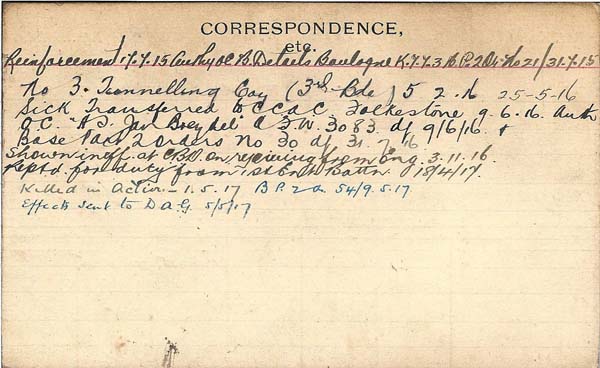 CORRESPONDENCE,
etc.
Reinforcement 17.7.15 Auth OC B Details Boulogne K.7.7.3 B.P.2 Dr. No 21/31.7.15
No 3. Tunnelling Coy (3rd Bde) 5 2.16 25-5-16
Sick Transferred to C.C.A.C Folkestone 9.6.16. Auth
O.C. "H.S. Jan Breydel" A.F.W. 3083. of 9/6/16. &
Base Part 2 orders No 30 of 31.7.16
Shown ineff. at CBD on rejoining from Eng. 3.11.16.
Reptd. for duty from 1st Ent. Battn. 18/4/17.
Killed in Action - 1.5.17 B P. 2 o. 54/9.5.17
Effects sent to D.A.G. 5/5/17